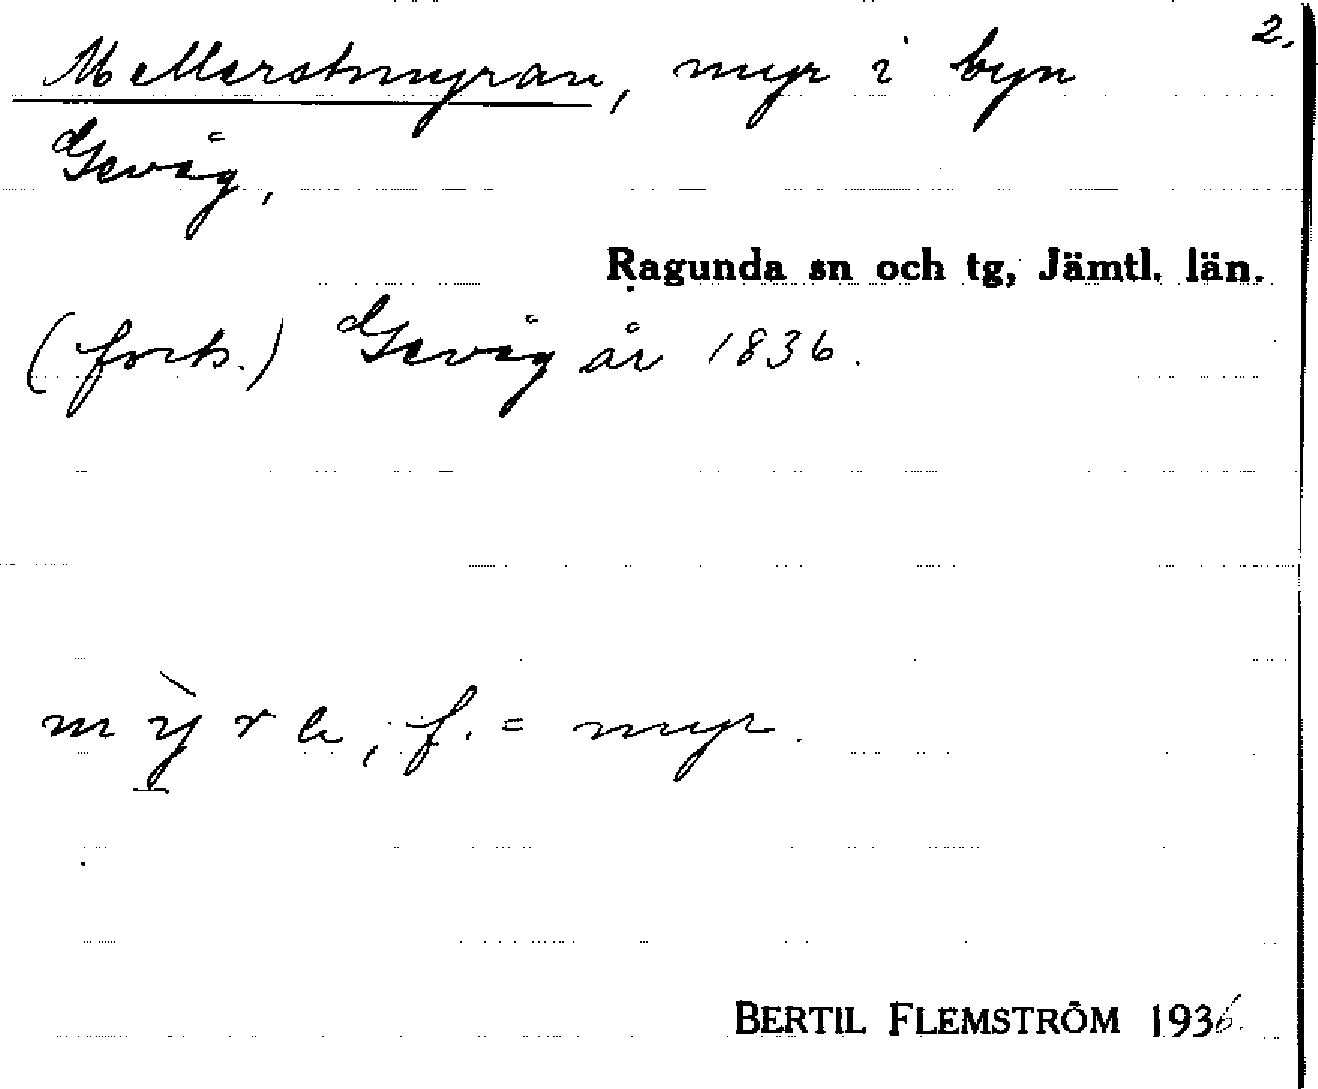 2.
Mellerstmyran, myr i byn
Gevåg,
Ragunda sn och tg, Jämtl. län.
(forts.) Gevåg år 1836.
m ỳ̱ r a, f. = myr.
BERTIL FLEMSTRÖM 1936.